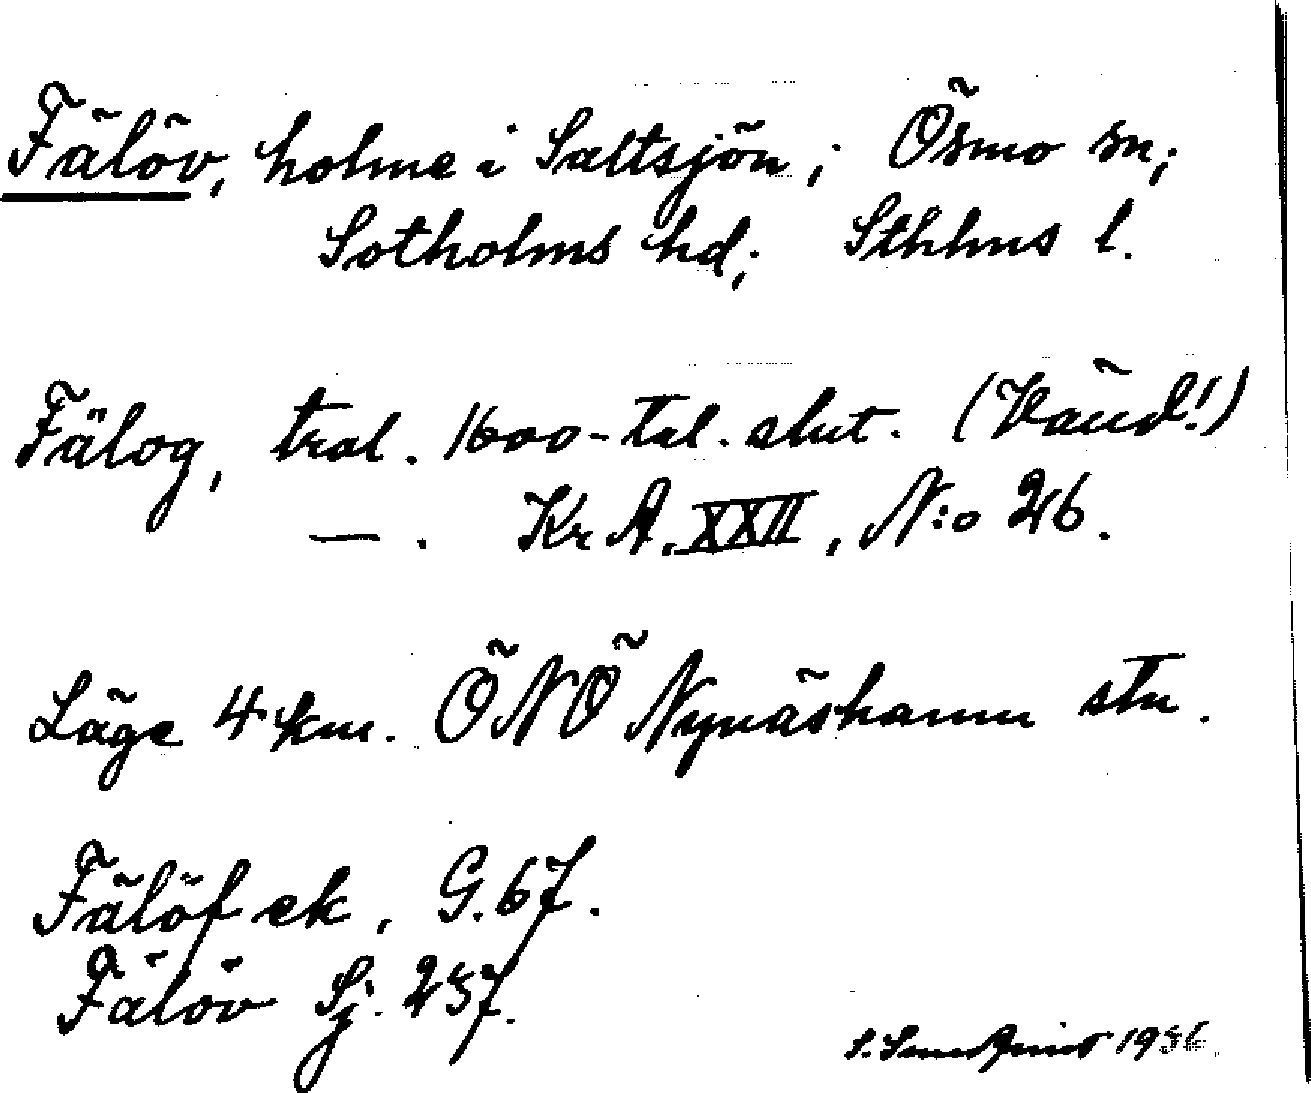 Fälöv, holme i Saltsjön; Ösmo sn;
Sotholms hd; Sthlms l.
Fälog, tral. 1600-tal. slut. (Vänd!)
— . KrA. XXII, N:o 26.
Läge 4 km. ÖNÖ Nynäshamn stn.
Fälöf ek, G. 67.
Fälöv Sj. 257.
S. 1936